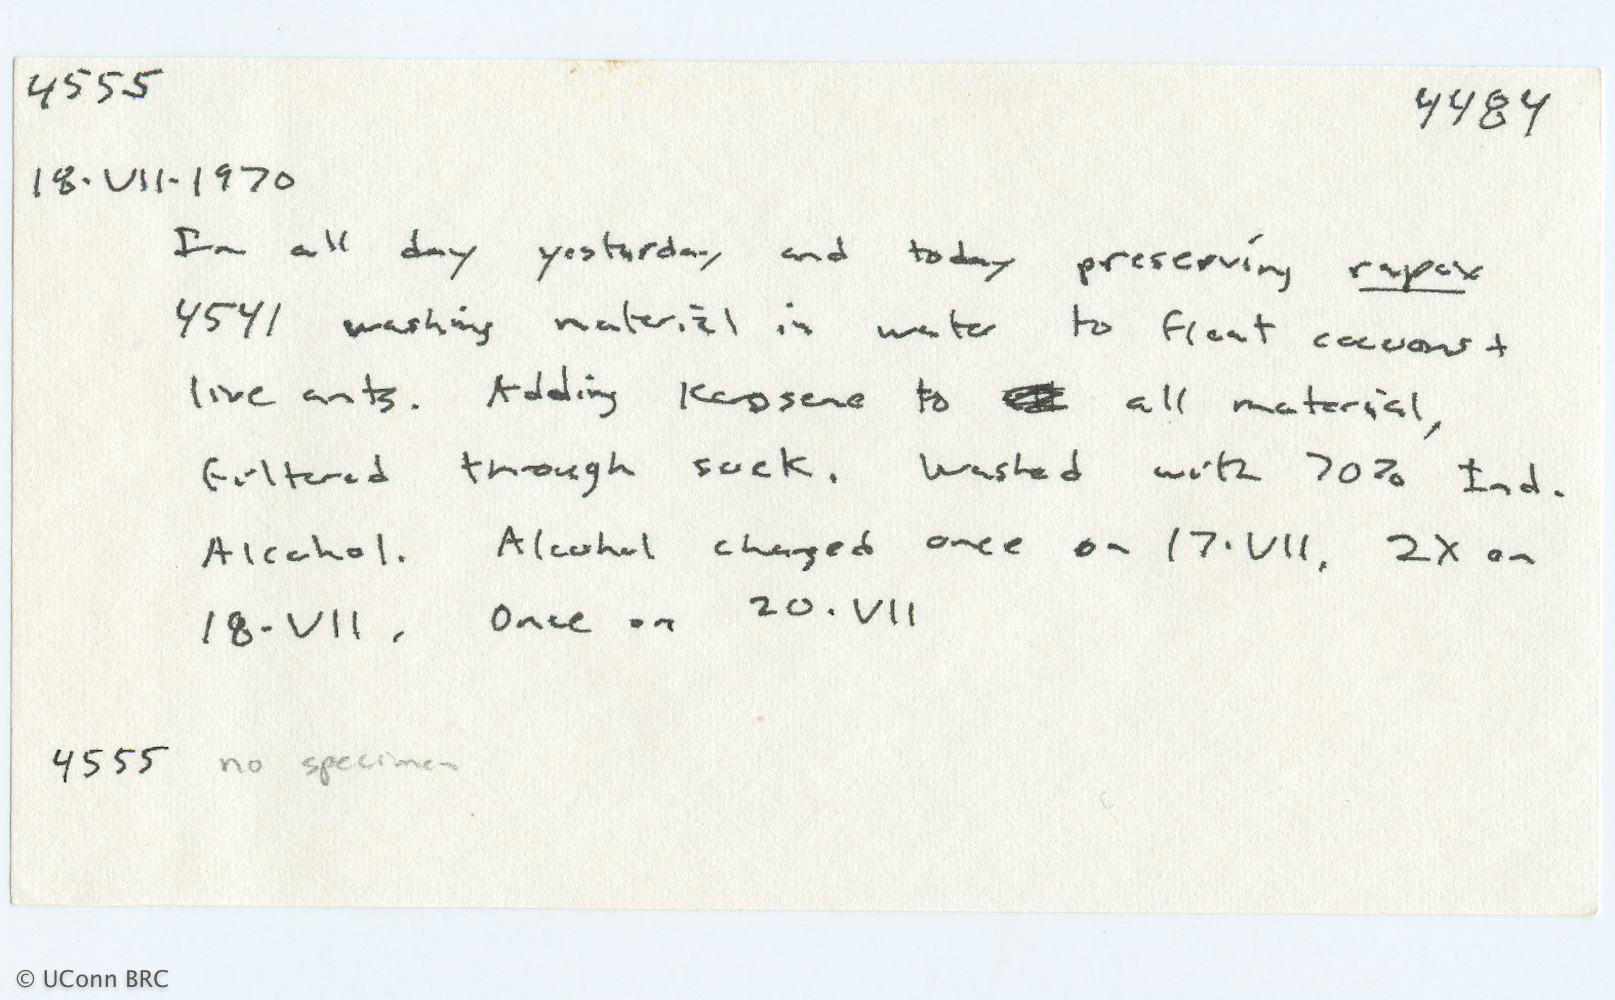 4555 4484
18.VII.1970
In all day yesterday and today preserving rapax
4541 washing material in water to float cocoons +
live ants. Adding Kerosene to all material,
filtered through sack. Washed with 70% Ind.
Alcohol. Alcohol changed once on 17.VII, 2X on
18.VII, Once on 20.VII
4555 no specimen
© UConn BRC